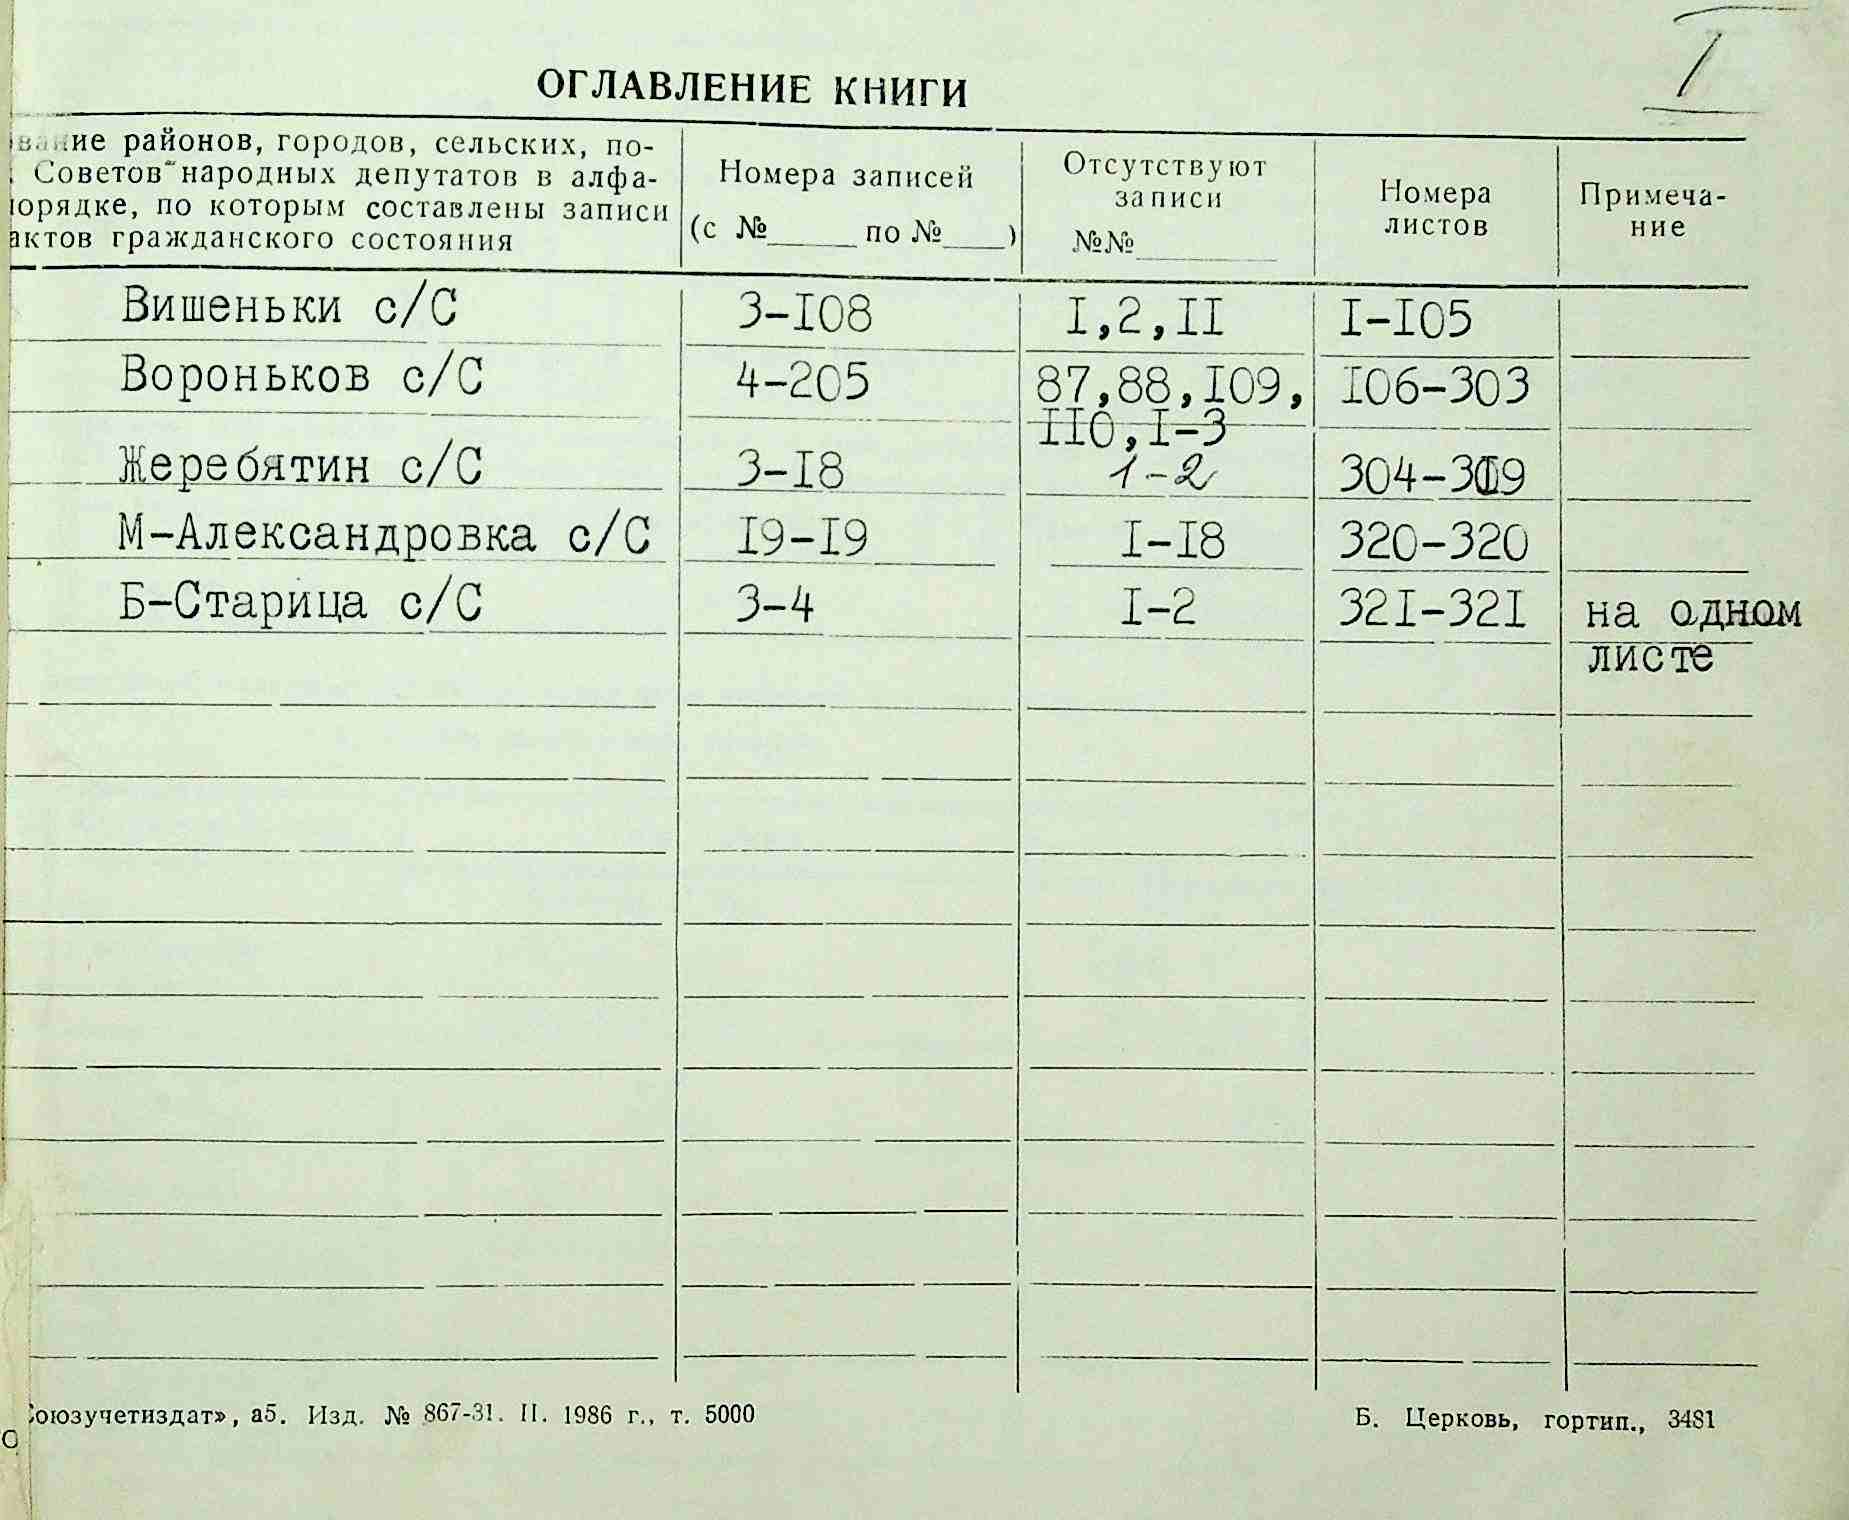 I
ОГЛАВЛЕНИЕ КНИГИ
вание районов, городов, сельских, по-
Советов народных депутатов в алфа-
орядке, по которым составлены записи
актов гражданского состояния
Номера записей
(с №______ по №____)
Отсутствуют
записи
№№_________
Номера
листов
Примеча-
ние
Вишеньки с/С 3-I08 I,2,II I-I05
Вороньков с/С 4-205 87,88,I09, I06-303
IIO,I-3
Жеребятин с/С 3-I8 1-2 304-3I9
М-Александровка с/С I9-I9 I-I8 320-320
Б-Старица с/С 3-4 I-2 32I-32I на одном
листе
Союзучетиздат», а5. Изд. № 867-31. II. 1986 г., т. 5000
Б. Церковь, гортип., 3481